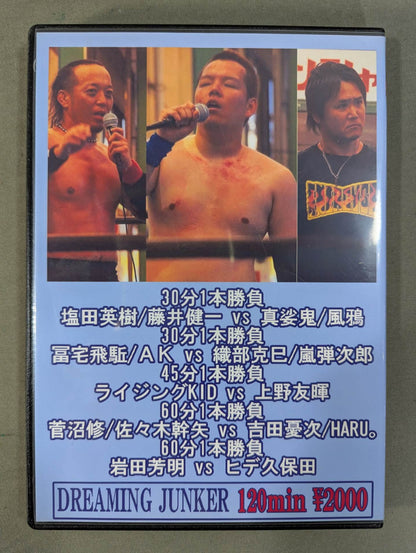 30分1本勝負
塩田英樹/藤井健一 vs 真娑鬼/風鴉
30分1本勝負
冨宅飛駈/AK vs 織部克巳/嵐弾次郎
45分1本勝負
ライジングKID vs 上野友暉
60分1本勝負
菅沼修/佐々木幹矢 vs 吉田憂次/HARU。
60分1本勝負
岩田芳明 vs ヒデ久保田
DREAMING JUNKER 120min ¥2000